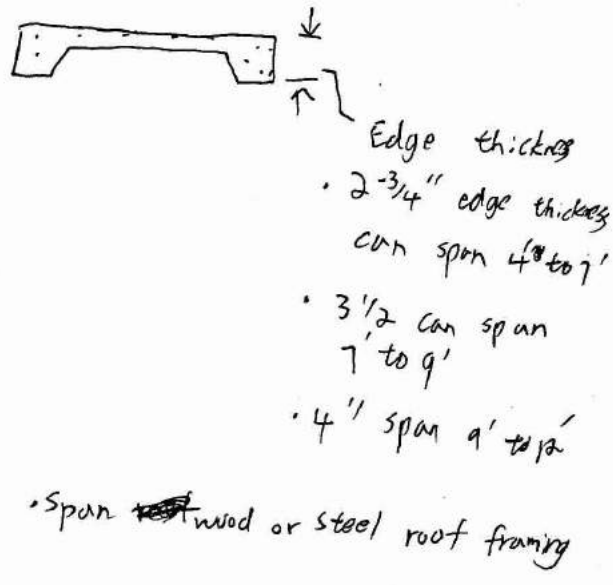 Edge thickness
• 2-3/4" edge thickness
can span 4' to 7'
• 3 1/2 can span
7' to 9'
• 4" span 9' to 12'
• span wood or steel roof framing